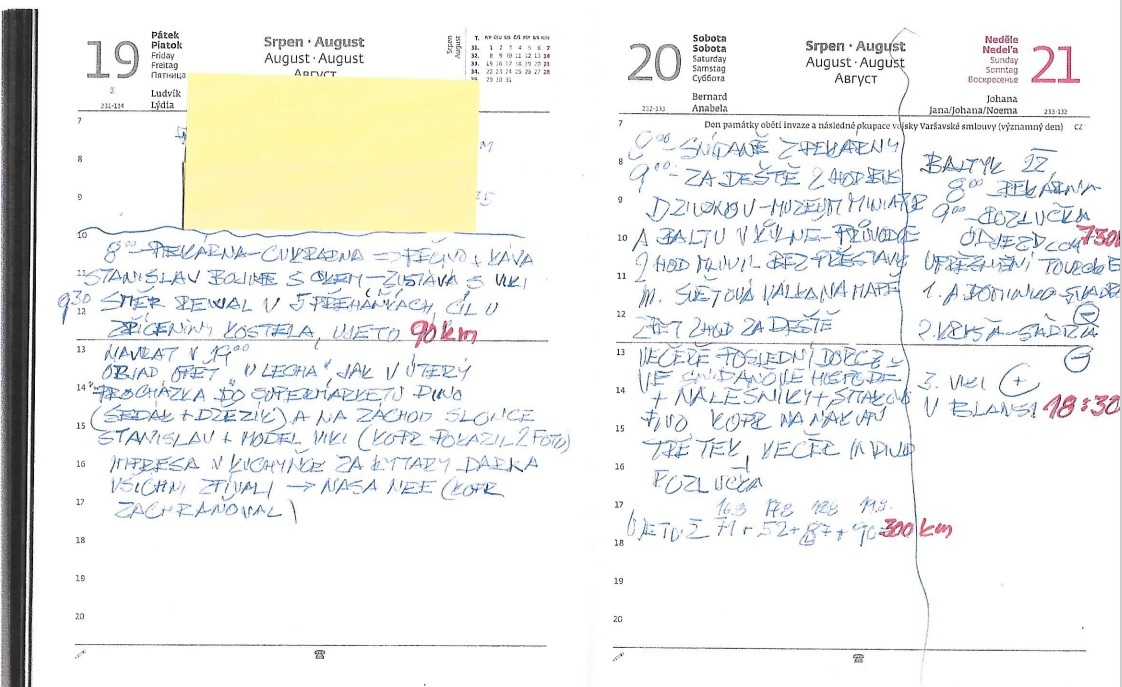 19
Pátek
Piatok
Friday
Freitag
Пятница
Srpen · August
August · August
Август
Srpen
August
T. 
31. 1 2 3 4 5 6 7
32. 8 9 10 11 12 13 14
33. 15 16 17 18 19 20 21
34. 22 23 24 25 26 27 28
35. 29 30 31
231-134
Ludvík
Lýdia
7
8
9
10
8⁰⁰ PEKÁRNA-CUKRÁRNA => PEČIVO + KÁVA
11
STANISLAV BOJUJE S OKEM - ZŮSTÁVÁ S VIKI
9³⁰ SMĚR REWAL V 5 PŘEHÁŇKÁCH, CÍL U
12
ZŘÍCENINY KOSTELA, UJETO 90 km
13
NÁVRAT V 19⁰⁰
OBIAD OPĚT "U LECHA" JAK V ÚTERÝ
14
PROCHÁZKA DO SUPERMARKETU DINO
(SEDAK + DŽEZIK) A NA ZACHOD SLONCE
15
STANISLAV + MODEL VIKI (KOPR POKAZIL 2 FOTO)
16
IMPRESA V KUCHYŇCE ZA KYTARY DARKA
17
VŠICHNI ZPÍVALI → NASA NEE (KOPR
ZACHRAŇOVAL)
18
19
20
20
Sobota
Sobota
Saturday
Samstag
Суббота
Srpen · August
August · August
Август
Neděle
Nedeľa
Sunday
Sonntag
Воскресенье
21
232-133
Bernard
Anabela
Johana
Jana/Johana/Noema
233-132
Den památky obětí invaze a následné okupace vojsky Varšavské smlouvy (významný den) CZ
7
8⁰⁰ - SNÍDANĚ Z PEKÁRNY
8
9⁰⁰ - ZA DEŠTĚ 2 HOD BUS
9
DZIWNOW - MUZEUM MINIATUR
10
A BALTU V - PRŮVODCE
2 HOD MLUVIL BEZ PŘESTÁVKY
11
III. SVĚTOVÁ VÁLKA NA MAPĚ
12
ZPĚT 2 HOD ZA DEŠTĚ
13
VEČEŘE POSLEDNÍ
VE SNÍDAŇOVÉ HOSPODĚ
14
+ NALEŠNIKY +
PIVO KOPR NA
15
VEČER
16
ROZLUČKA
17
16.8 17.8 19.8.
UJETO: Σ 71 + 52 + 87 + 90 = 300 km
18
19
20
BALTYK 22
8⁰⁰ PEKÁRNA
9⁰⁰ - ROZLUČKA
ODJEZD CCA 730
UPŘESNĚNÍ
1. A DOMINIKO SVADBA
⊖
2.
⊖
3. VIKI ⊕
V BLANSI 18:30